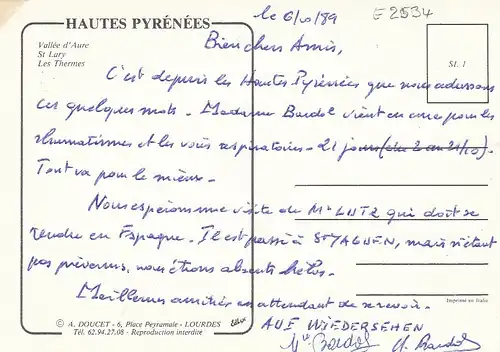 HAUTES PYRÉNÉES
le 6/10/89
E 2534
Vallée d'Aure
St Lary
Les Thermes
St. 1
Bien chers Amis,
C'est depuis les Hautes Pyrénées que nous adressons
ces quelques mots. Madame Bardol vient en cure pour les
rhumatismes et les voies respiratoires - 21 jours (du 2 au 21/10).
Tout va pour le mieux.
Nous espérions une visite de Mr LUTZ qui doit se
rendre en Espagne. Il est passé à St YAGUEN, mais n'étant
pas prévenus, nous étions absents hélas.
Meilleures amitiés en attendant de se revoir.
AUF WIEDERSEHEN
Imprimé en Italie
© A. DOUCET - 6, Place Peyramale - LOURDES
Tél. 62.94.27.08 - Reproduction interdite
Bardol Bardol